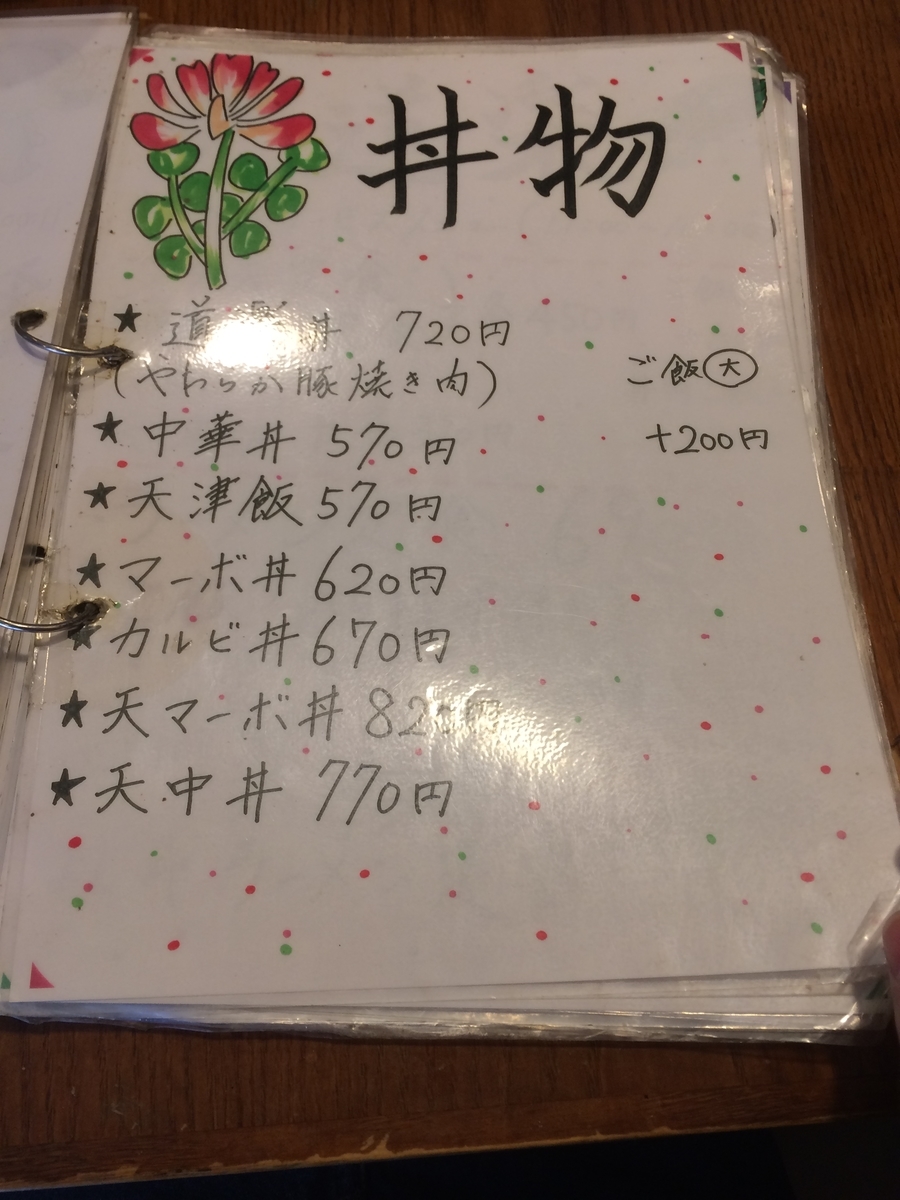 丼物
★ 道 丼 720円
(やわらか豚焼き肉)
ご飯大
+200円
★ 中華丼 570円
★ 天津飯 570円
★ マーボ丼 620円
★ カルビ丼 670円
★ 天マーボ丼 820円
★ 天中丼 770円